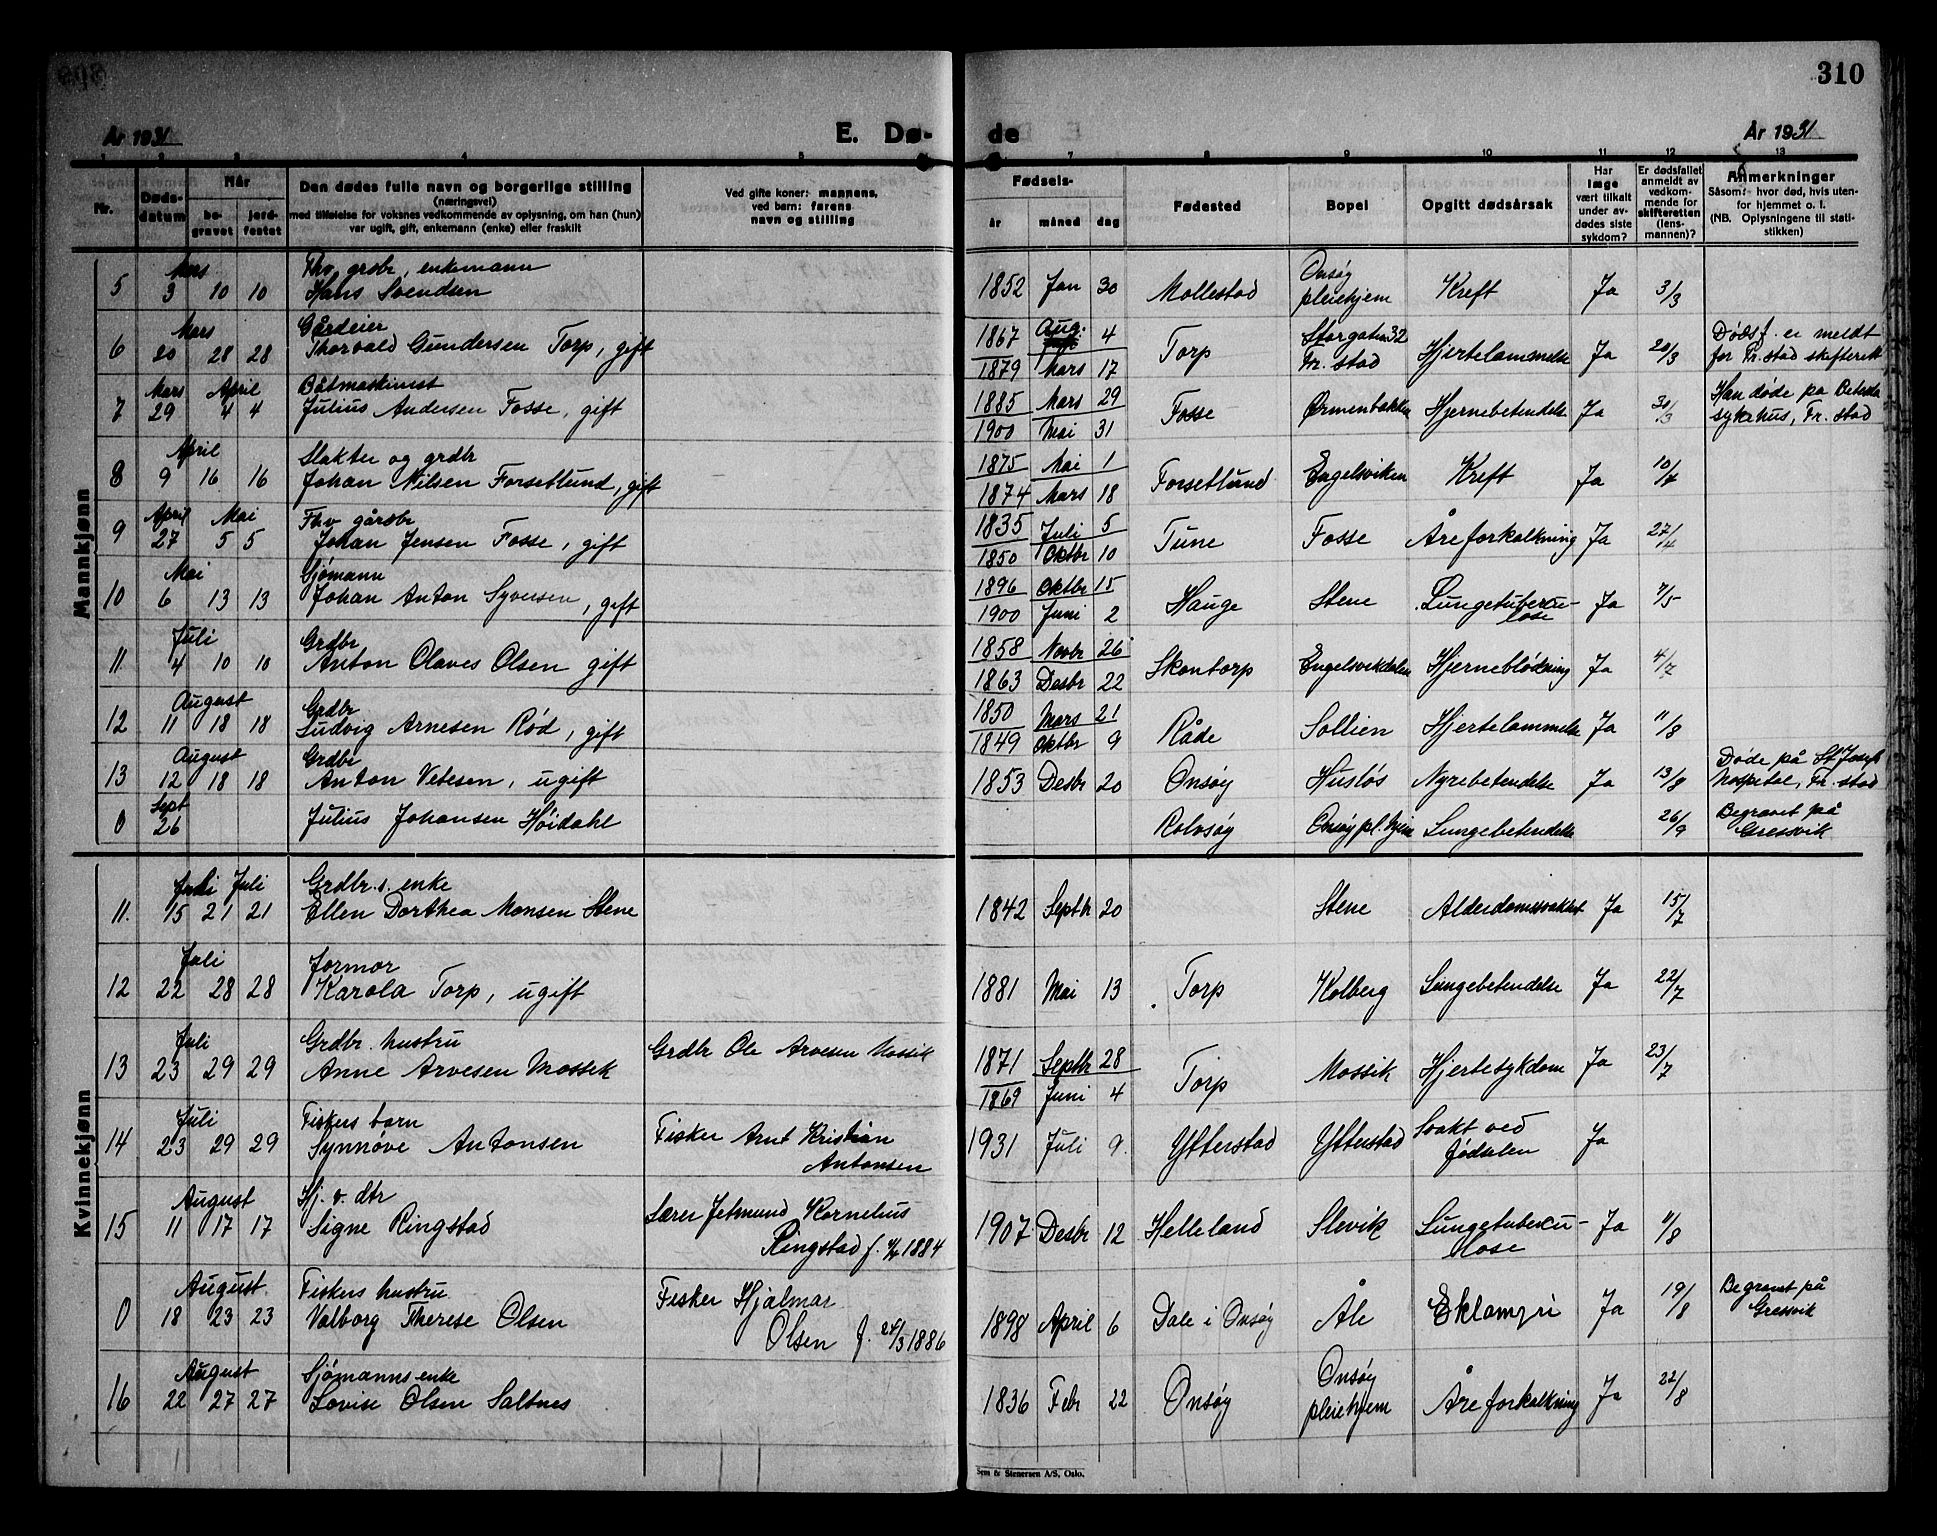 310
År 1931
E. Dø-
de
År 1931
4 5 7 8 9 10 11 12 13
Nr.
Døds-
datum
Når
be-
gravet
jord-
festet
Den dødes fulle navn og borgerlige stilling
(næringsvei)
med tilføielse for voksnes vedkommende av oplysning, om han (hun)
var ugift, gift, enkemann (enke) eller fraskilt
Ved gifte koner: mannens,
ved barn: farens
navn og stilling
Fødsels-
år måned dag
Fødested
Bopel
Opgitt dødsårsak
Har
læge
vært tilkalt
under av-
dødes siste
sykdom?
Er dødsfallet
anmeldt av
vedkom-
mende for
skifteretten
(lens-
mannen)?
Anmerkninger
Såsom: hvor død, hvis uten-
for hjemmet o. l.
(NB. Oplysningene til stati-
stikken)
Mannkjønn
Mars Fhv grdbr, enkemann
5 3 10 10 Hans Svendsen 1852 Jan 30 Mollestad Onsøy pleiehjem Kreft Ja 3/3
Mars Gårdeier
6 20 28 28 Thorvald Gundersen Torp, gift 1867 Aug. 4 Torp Storgaten 32 Fr. stad Hjertelammelse Ja 20/3 Dødsf. er meldt
1879 Mars 17 for Fr. stad skifterett
Mars April Båtmaskinist
7 29 4 4 Julius Andersen Fosse, gift 1885 Mars 29 Fosse Ørmenbakken Hjernebetendelse Ja 30/3 Han døde på Betsda
1900 Mai 31 sykehus, Fr. stad
April Slakter og grdbr
8 9 16 16 Johan Nilsen Forsetlund, gift 1875 Mai 1 Forsetlund Engelsviken Kreft Ja 10/4
1874 Mars 18
April Mai Fhv gårdbr
9 27 5 5 Johan Jensen Fosse, gift 1835 Juli 5 Tune Fosse Åreforkalkning Ja 27/4
1850 Oktbr 10
Mai Sjømann
10 6 13 13 Johan Anton Syversen, gift 1896 Oktbr 15 Hauge Stene Lungetubercu-
1900 Juni 2 lose Ja 7/5
Juli Grdbr
11 4 10 10 Anton Olaves Olsen gift 1858 Novbr 26 Skontorp Engelsvikdalen Hjerneblødning Ja 4/7
1863 Desbr 22
August Grdbr
12 11 18 18 Ludvig Arnesen Rød, gift 1850 Mars 21 Råde Sollien Hjertelammelse Ja 11/8
1849 Oktbr 9
August Grdbr
13 12 18 18 Anton Vetesen, ugift 1853 Desbr 20 Onsøy Husløs Nyrebetendelse Ja 13/8 Døde på St Joseph
hospital, Fr. stad
Sept
0 26 Julius Johansen Höidahl Rolvsøy Onsøy pl. hjem Lungebetendelse 26/9 Begravet på
Gressvik
Kvinnekjønn
Juli Juli Grdbr.s. enke
11. 15 21 21 Ellen Dorthea Monsen Stene 1842 Septb 20 Stene Alderdomssvakhet Ja 15/7
Juli Jormor
12 22 28 28 Karola Torp, ugift 1881 Mai 13 Torp Kolberg Lungebetendelse Ja 22/7
Juli Grdbr. hustru
13 23 29 29 Anne Arvesen Mossik Grdbr Ole Arvesen Mossik 1871 Septb 28 Torp Mossik Hjertesykdom Ja 23/7
1869 Juni 4
Juli Fiskers barn
14 23 29 29 Synnöve Antonsen Fisker Arnt Kristian
Antonsen 1931 Juli 9 Ytterstad Ytterstad Svakt ved
fødselen Ja
August Hj. v. dtr
15 11 17 17 Signe Ringstad Lærer Jetmund Kornelius
Ringstad f. 1884 1907 Desbr 12 Helleland Slevik Lungetubercu-
lose Ja 11/8
August Fiskers hustru
0 18 23 23 Valborg Therese Olsen Fisker Hjalmar
Olsen f. 24/3 1886 1898 April 6 Dale i Onsøy Åle Eklampsi Ja 19/8 Begravet på
Gressvik
August Sjømanns enke
16 22 27 27 Lovise Olsen Saltnes 1836 Febr 22 Onsøy Onsøy
pleiehjem Åreforkalkning Ja 22/8
Sem & Stenersen A/S, Oslo.